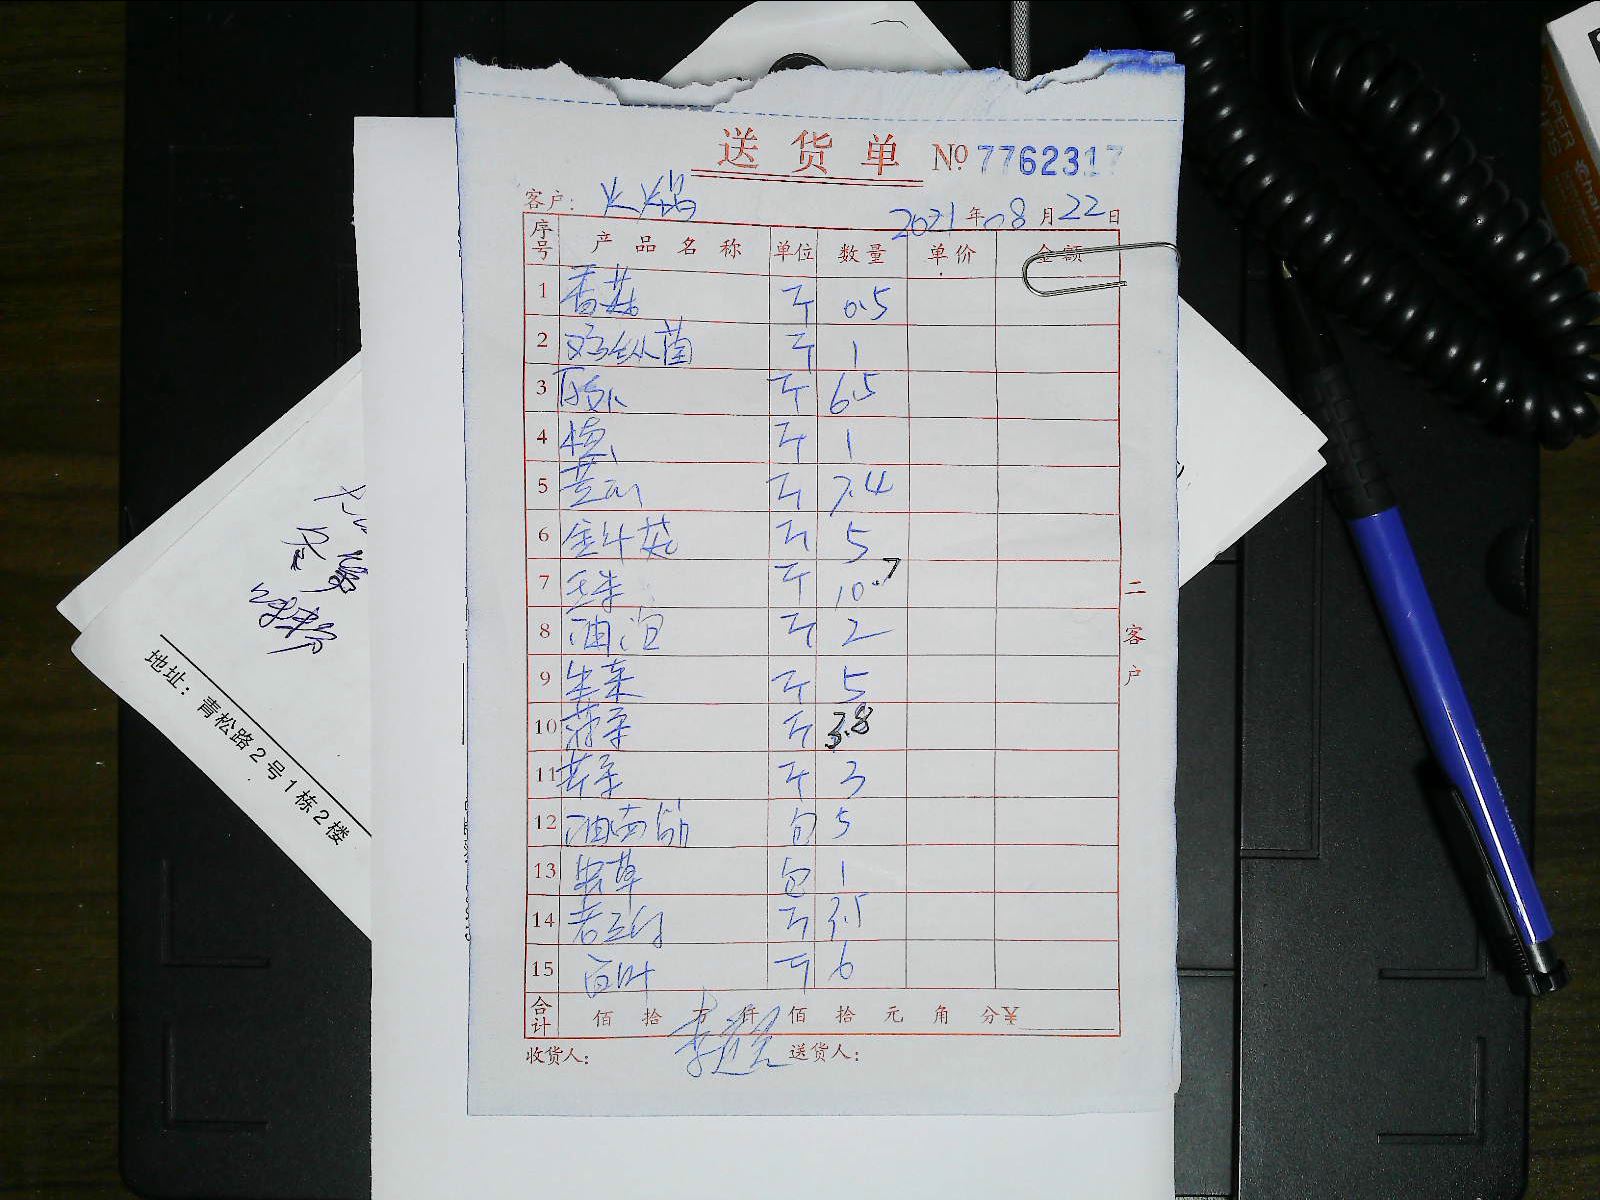 送货单 № 7762317
客户: 火锅 2021年08月22日
序号 产品名称 单位 数量 单价 金额
1 香菇 斤 0.5
2 鸡纵菌 斤 1
3 斤 6.5
4 斤 1
5 斤 7.4
6 金针菇 斤 5
7 斤 10.7
8 油泡 斤 2
9 生菜 斤 5
10 斤 3.8
11 斤 3
12 油面筋 包 5
13 虫草 包 1
14 斤 3.5
15 百叶 斤 6
合计 佰 拾 万 仟 佰 拾 元 角 分 ¥
收货人: 送货人:
二客户
地址：青松路2号1栋2楼